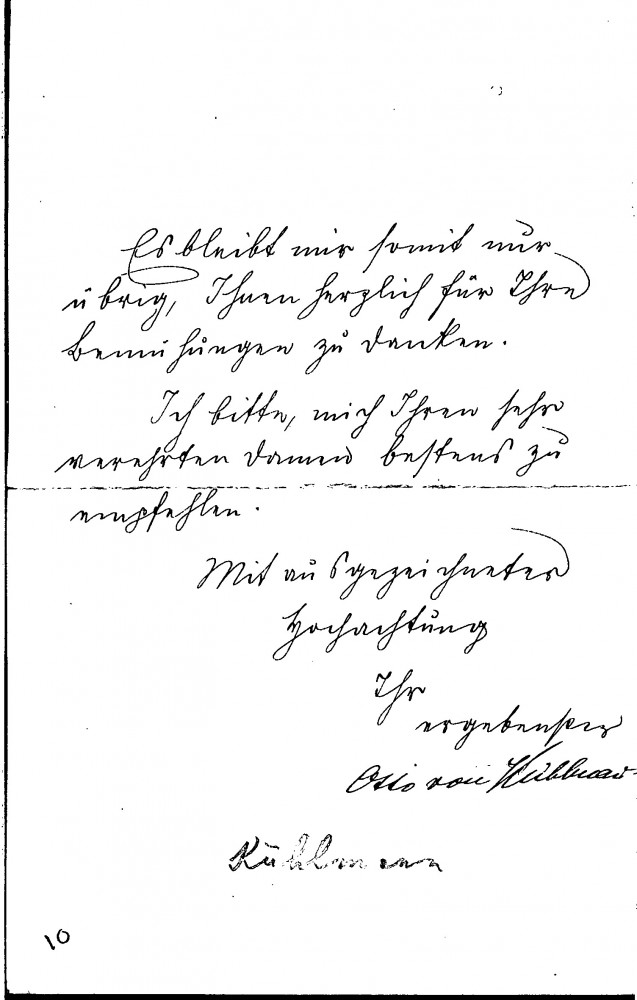 Es bleibt mir somit nur
übrig, Ihnen herzlich für Ihre
Bemühungen zu danken.
Ich bitte, mich Ihren sehr
verehrten Damen bestens zu
empfehlen.
Mit ausgezeichneter
Hochachtung
Ihr
ergebenster
Otto von Kühlmann
Kühlmann
10